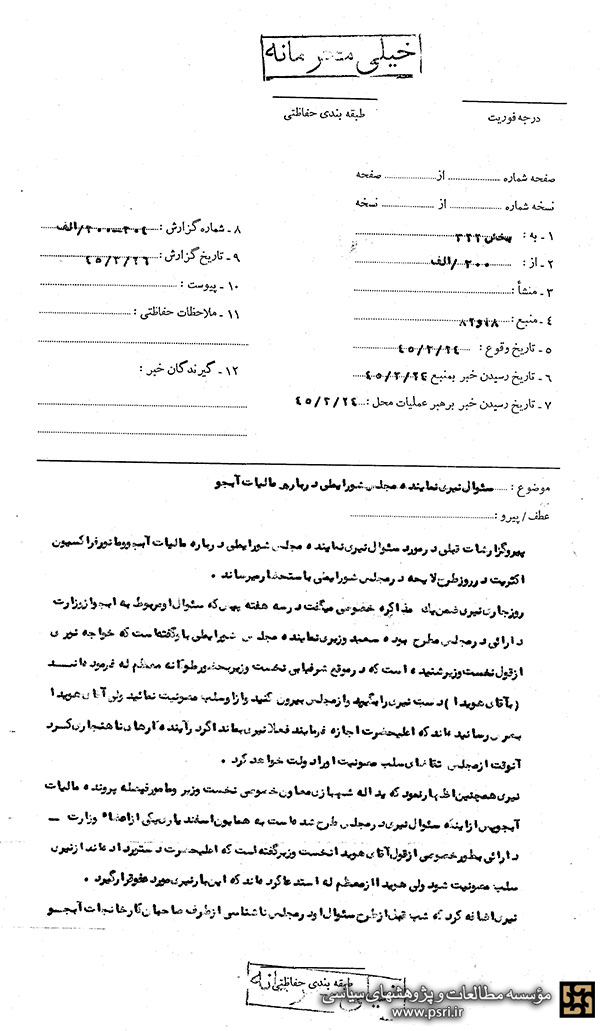 خیلی محرمانه
درجه فوریت
طبقه بندی حفاظتی
صفحه شماره از صفحه
نسخه شماره از نسخه
۱ - به : بخش ۳۲۲
۲ - از : ۲۰۰ /الف
۳ - منشأ :
۴ - منبع : ۱۸و۸۲
۵ - تاریخ وقوع : ۴۵/۲/۲۴
۶ - تاریخ رسیدن خبر بمنبع ۴۵/۲/۲۴
۷ - تاریخ رسیدن خبر برهبر عملیات محل : ۴۵/۲/۲۴
۸ - شماره گزارش : ۲۰۰-۳۰۴/الف
۹ - تاریخ گزارش : ۴۵/۲/۲۶
۱۰ - پیوست :
۱۱ - ملاحظات حفاظتی :
۱۲ - گیرندگان خبر :
موضوع : سئوال نیری نماینده مجلس شورایملی درباره مالیات آبجو
عطف / پیرو :
پیرو گزارشات قبلی در مورد سئوال نیری نماینده مجلس شورایملی درباره مالیات آبجو و مانور فراکسیون
اکثریت در روز طرح لایحه در مجلس شورایملی باستحضار میرساند .
روز جاری نیری ضمن یک مذاکره خصوصی میگفت در سه هفته پیش که سئوال او مربوط به آبجو از وزارت
دارائی در مجلس مطرح بوده سعید وزیری نماینده مجلس شورایملی باو گفته است که خواجه نوری
از قول نخست وزیر شنیده است که در موقع شرفیابی نخست وزیر بحضور ملوکانه معظم له فرموده‌اند
(بآقای هویدا) دست نیری را بگیرید و از مجلس بیرون کنید و از او سلب مصونیت نمائید ولی آقای هویدا
بعرض رسانیده‌اند که اعلیحضرت اجازه فرمایند فعلا نیری بماند اگر در آینده کارهای ناهنجاری کرد
آنوقت از مجلس تقاضای سلب مصونیت او را دولت خواهد کرد .
نیری همچنین اظهار نمود که یداله شهبازی معاون خصوصی نخست وزیر و مامور فیصله پرونده مالیات
آبجو پس از اینکه سئوال نیری در مجلس طرح شده است به همایون اسفندیاری یکی از اعضاء وزارت -
دارائی بطور خصوصی از قول آقای هویدا نخست وزیر گفته است که اعلیحضرت دستور داده‌اند از نیری
سلب مصونیت شود ولی هویدا از معظم له استدعا کرده‌اند که این بار نیری مورد عفو قرار گیرد .
نیری اضافه کرد که شب قبل از طرح سئوال او در مجلس ناشناسی از طرف صاحبان کارخانجات آبجو
طبقه بندی حفاظتی
خیلی محرمانه
مؤسسه مطالعات و پژوهشهای سیاسی
www.psri.ir